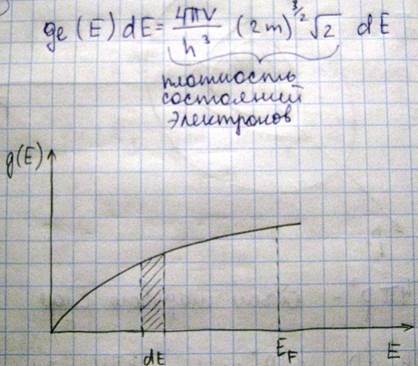 ge(E)dE = 4πV/h³ (2m)^3/2 √2 dE
плотность
состояний
электронов
g(E)
dE
E_F
E